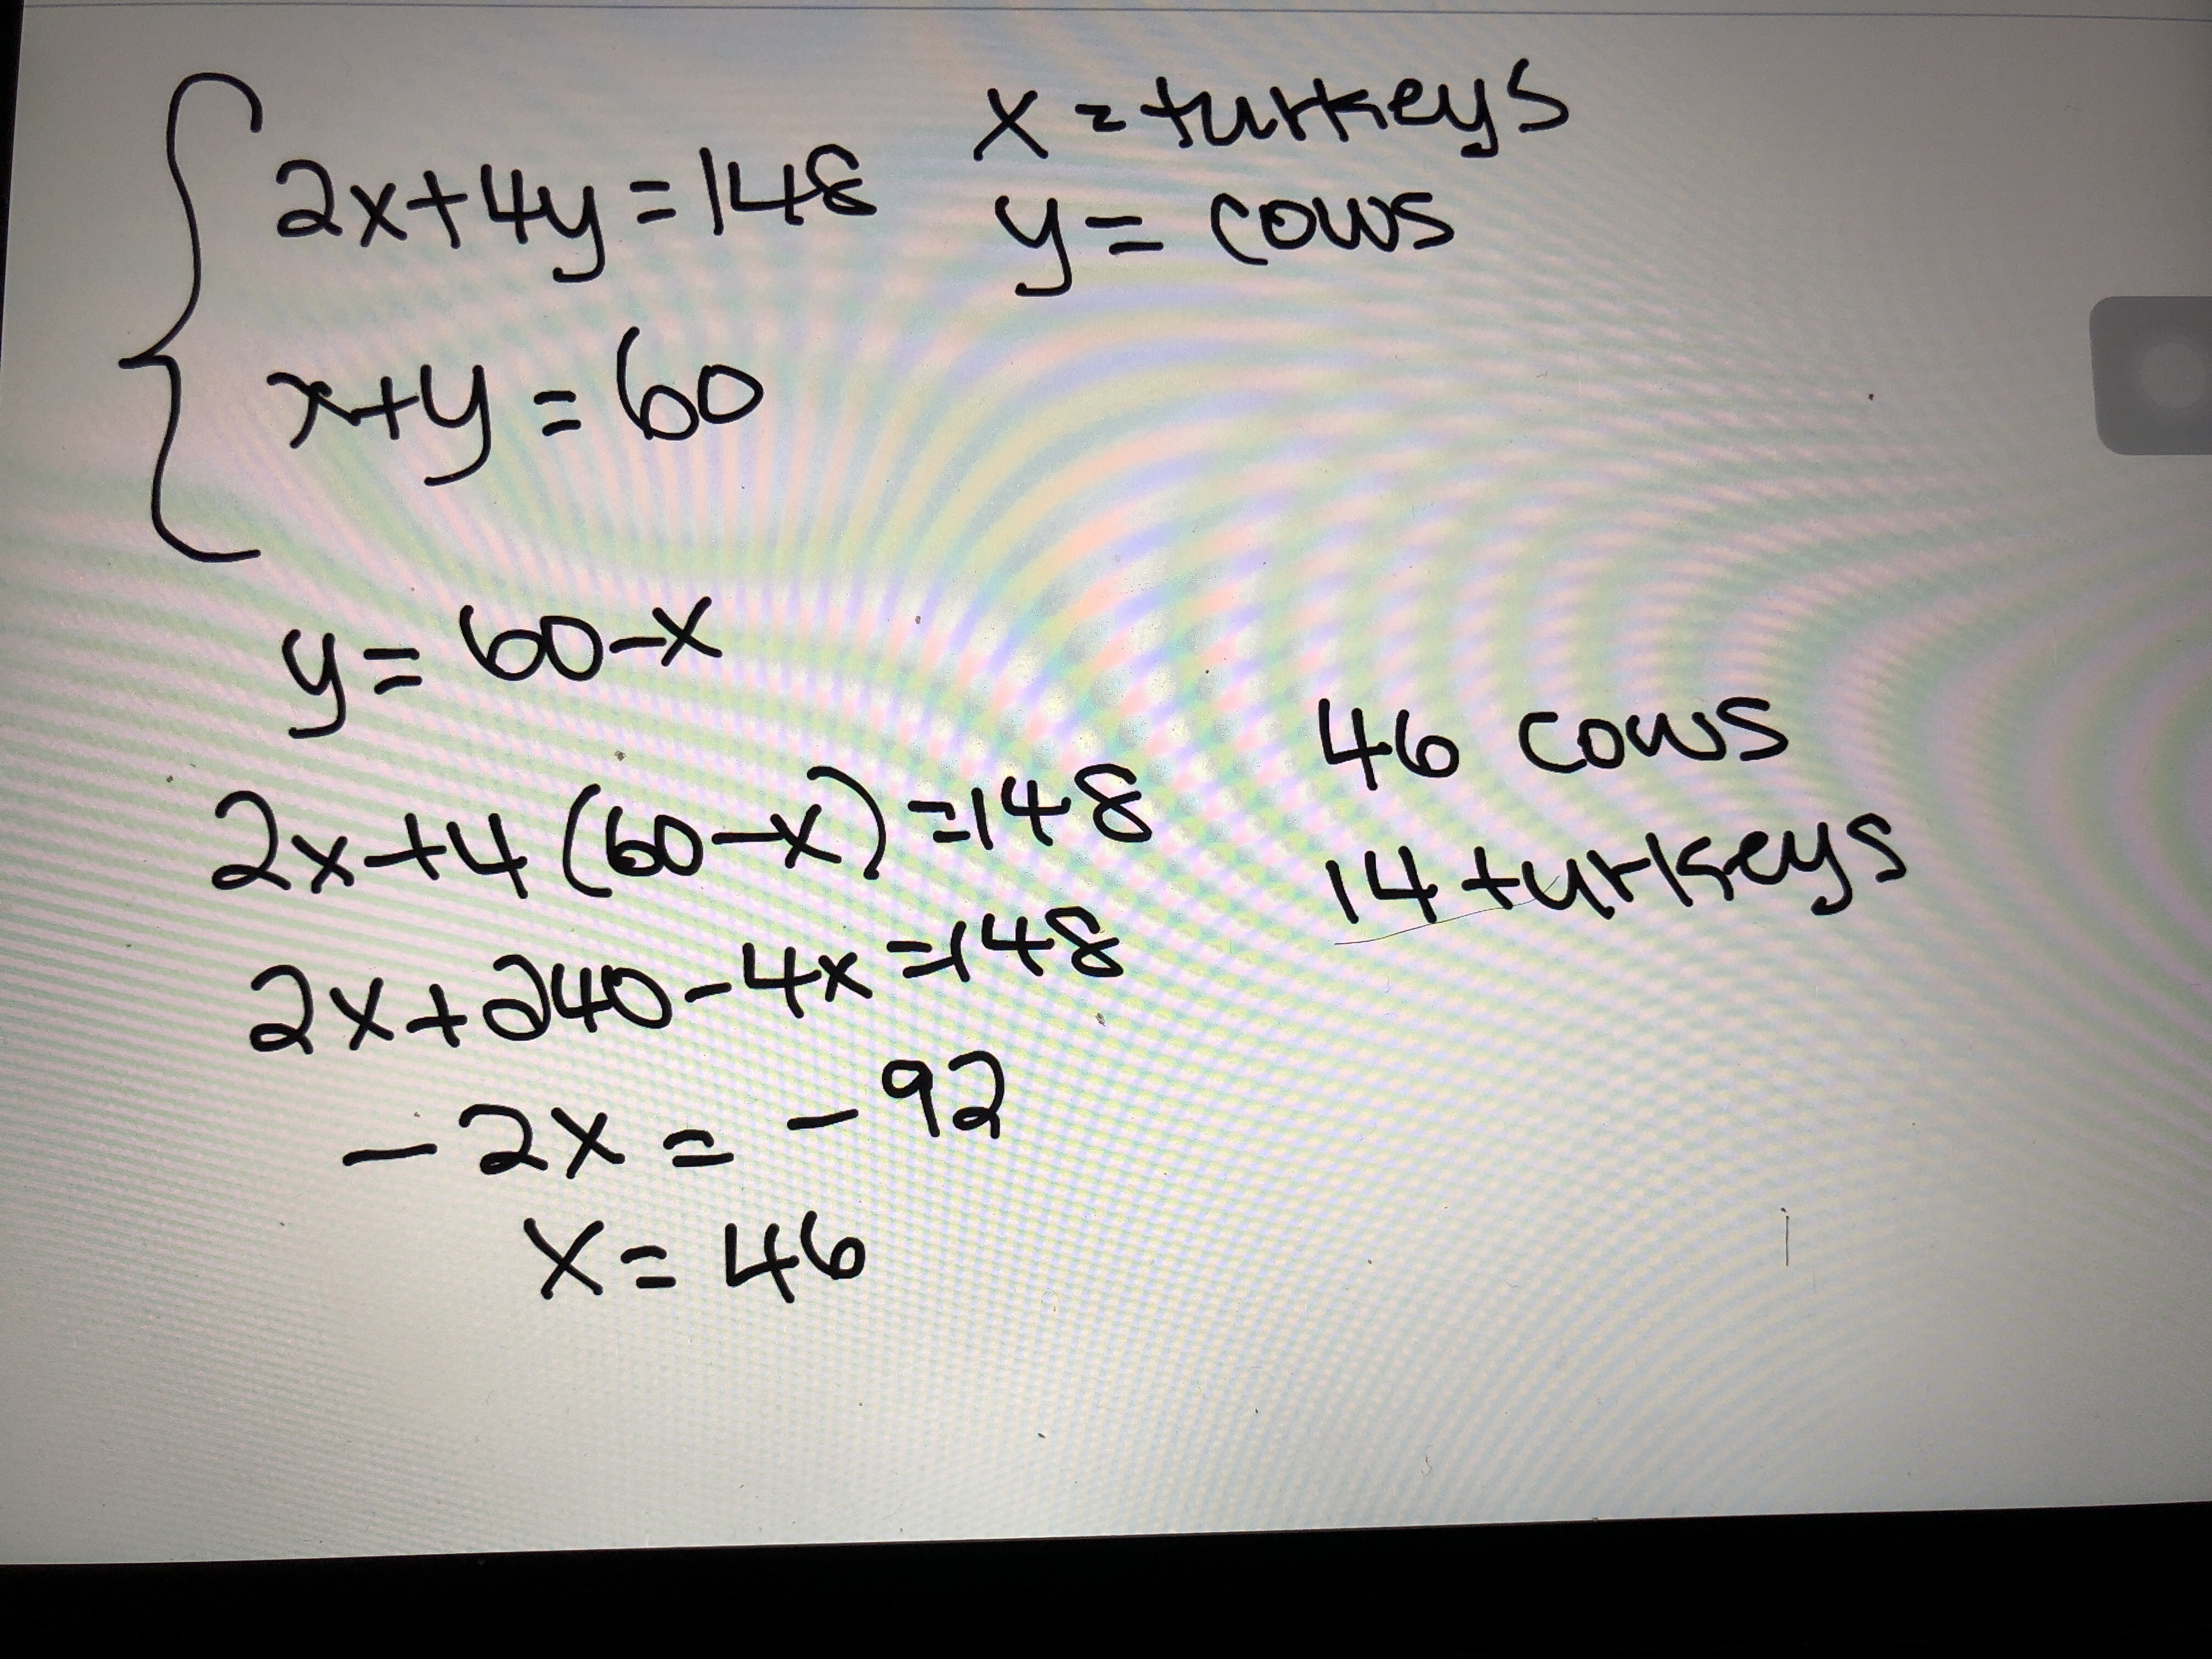 2x+4y=148
x+y=60
x=turkeys
y=cows
y=60-x
2x+4(60-x)=148
2x+240-4x=148
-2x=-92
x=46
46 cows
14 turkeys